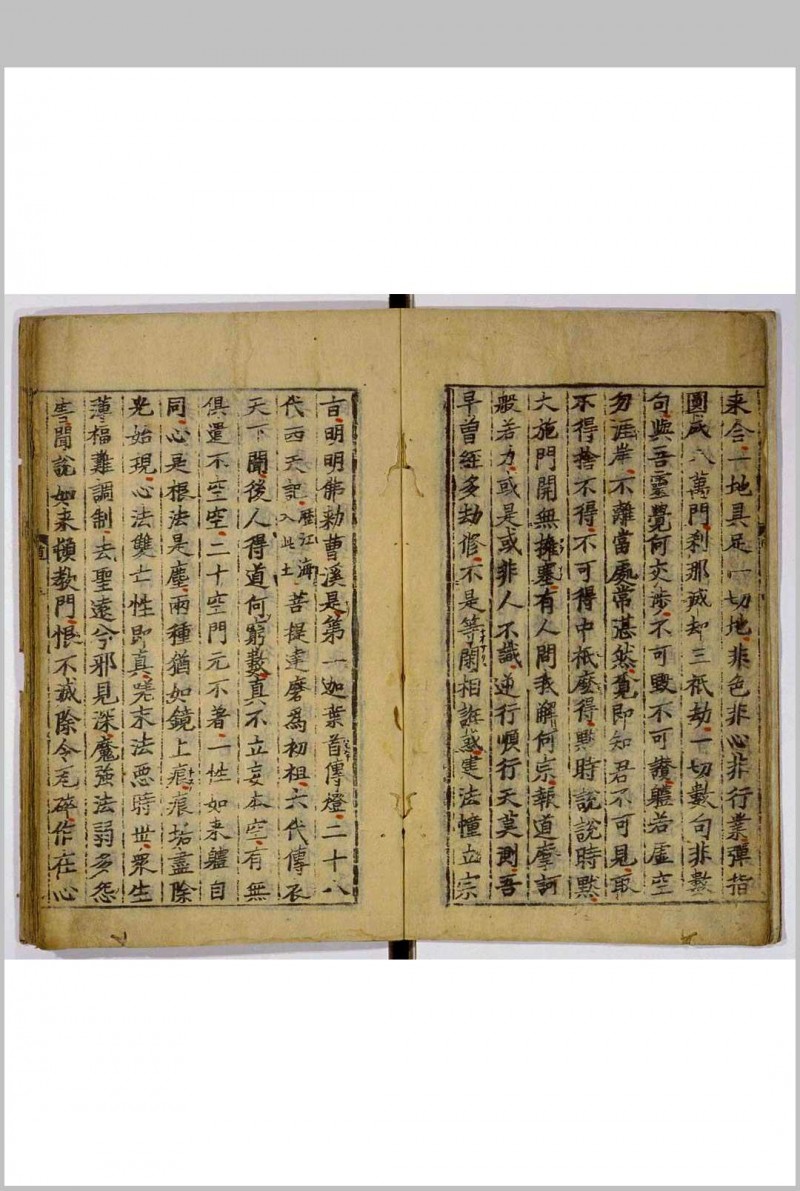 来今一地具足一切地非色非心非行業彈指
圓成八萬門刹那滅却三祇劫一切數句非數
句與吾靈覺何交涉不可毀不可讃軆若虛空
勿涯岸不離當處常湛然覓即知君不可見取
不得捨不得不可得中秖麽得黙時說說時黙
大施門開無擁塞有人問我解何宗報道摩訶
般若力或是或非人不識逆行順行天莫測吾
早曽經多劫修不是等閑相誑惑建法幢立宗
㫖明明佛勑曹溪是第一迦葉首傳燈二十八
代西天記歷江海入此土菩提達磨爲初祖六代傳衣
天下聞後人得道何窮數真不立妄本空有無
俱遣不空空二十空門元不著一性如来軆自
同心是根法是塵兩種猶如鏡上痕痕垢盡除
光始現心法雙亡性即真嗟末法惡時世衆生
薄福難調制去聖遠兮邪見深魔強法弱多怨
害聞說如来頓教門恨不滅除令瓦碎作在心